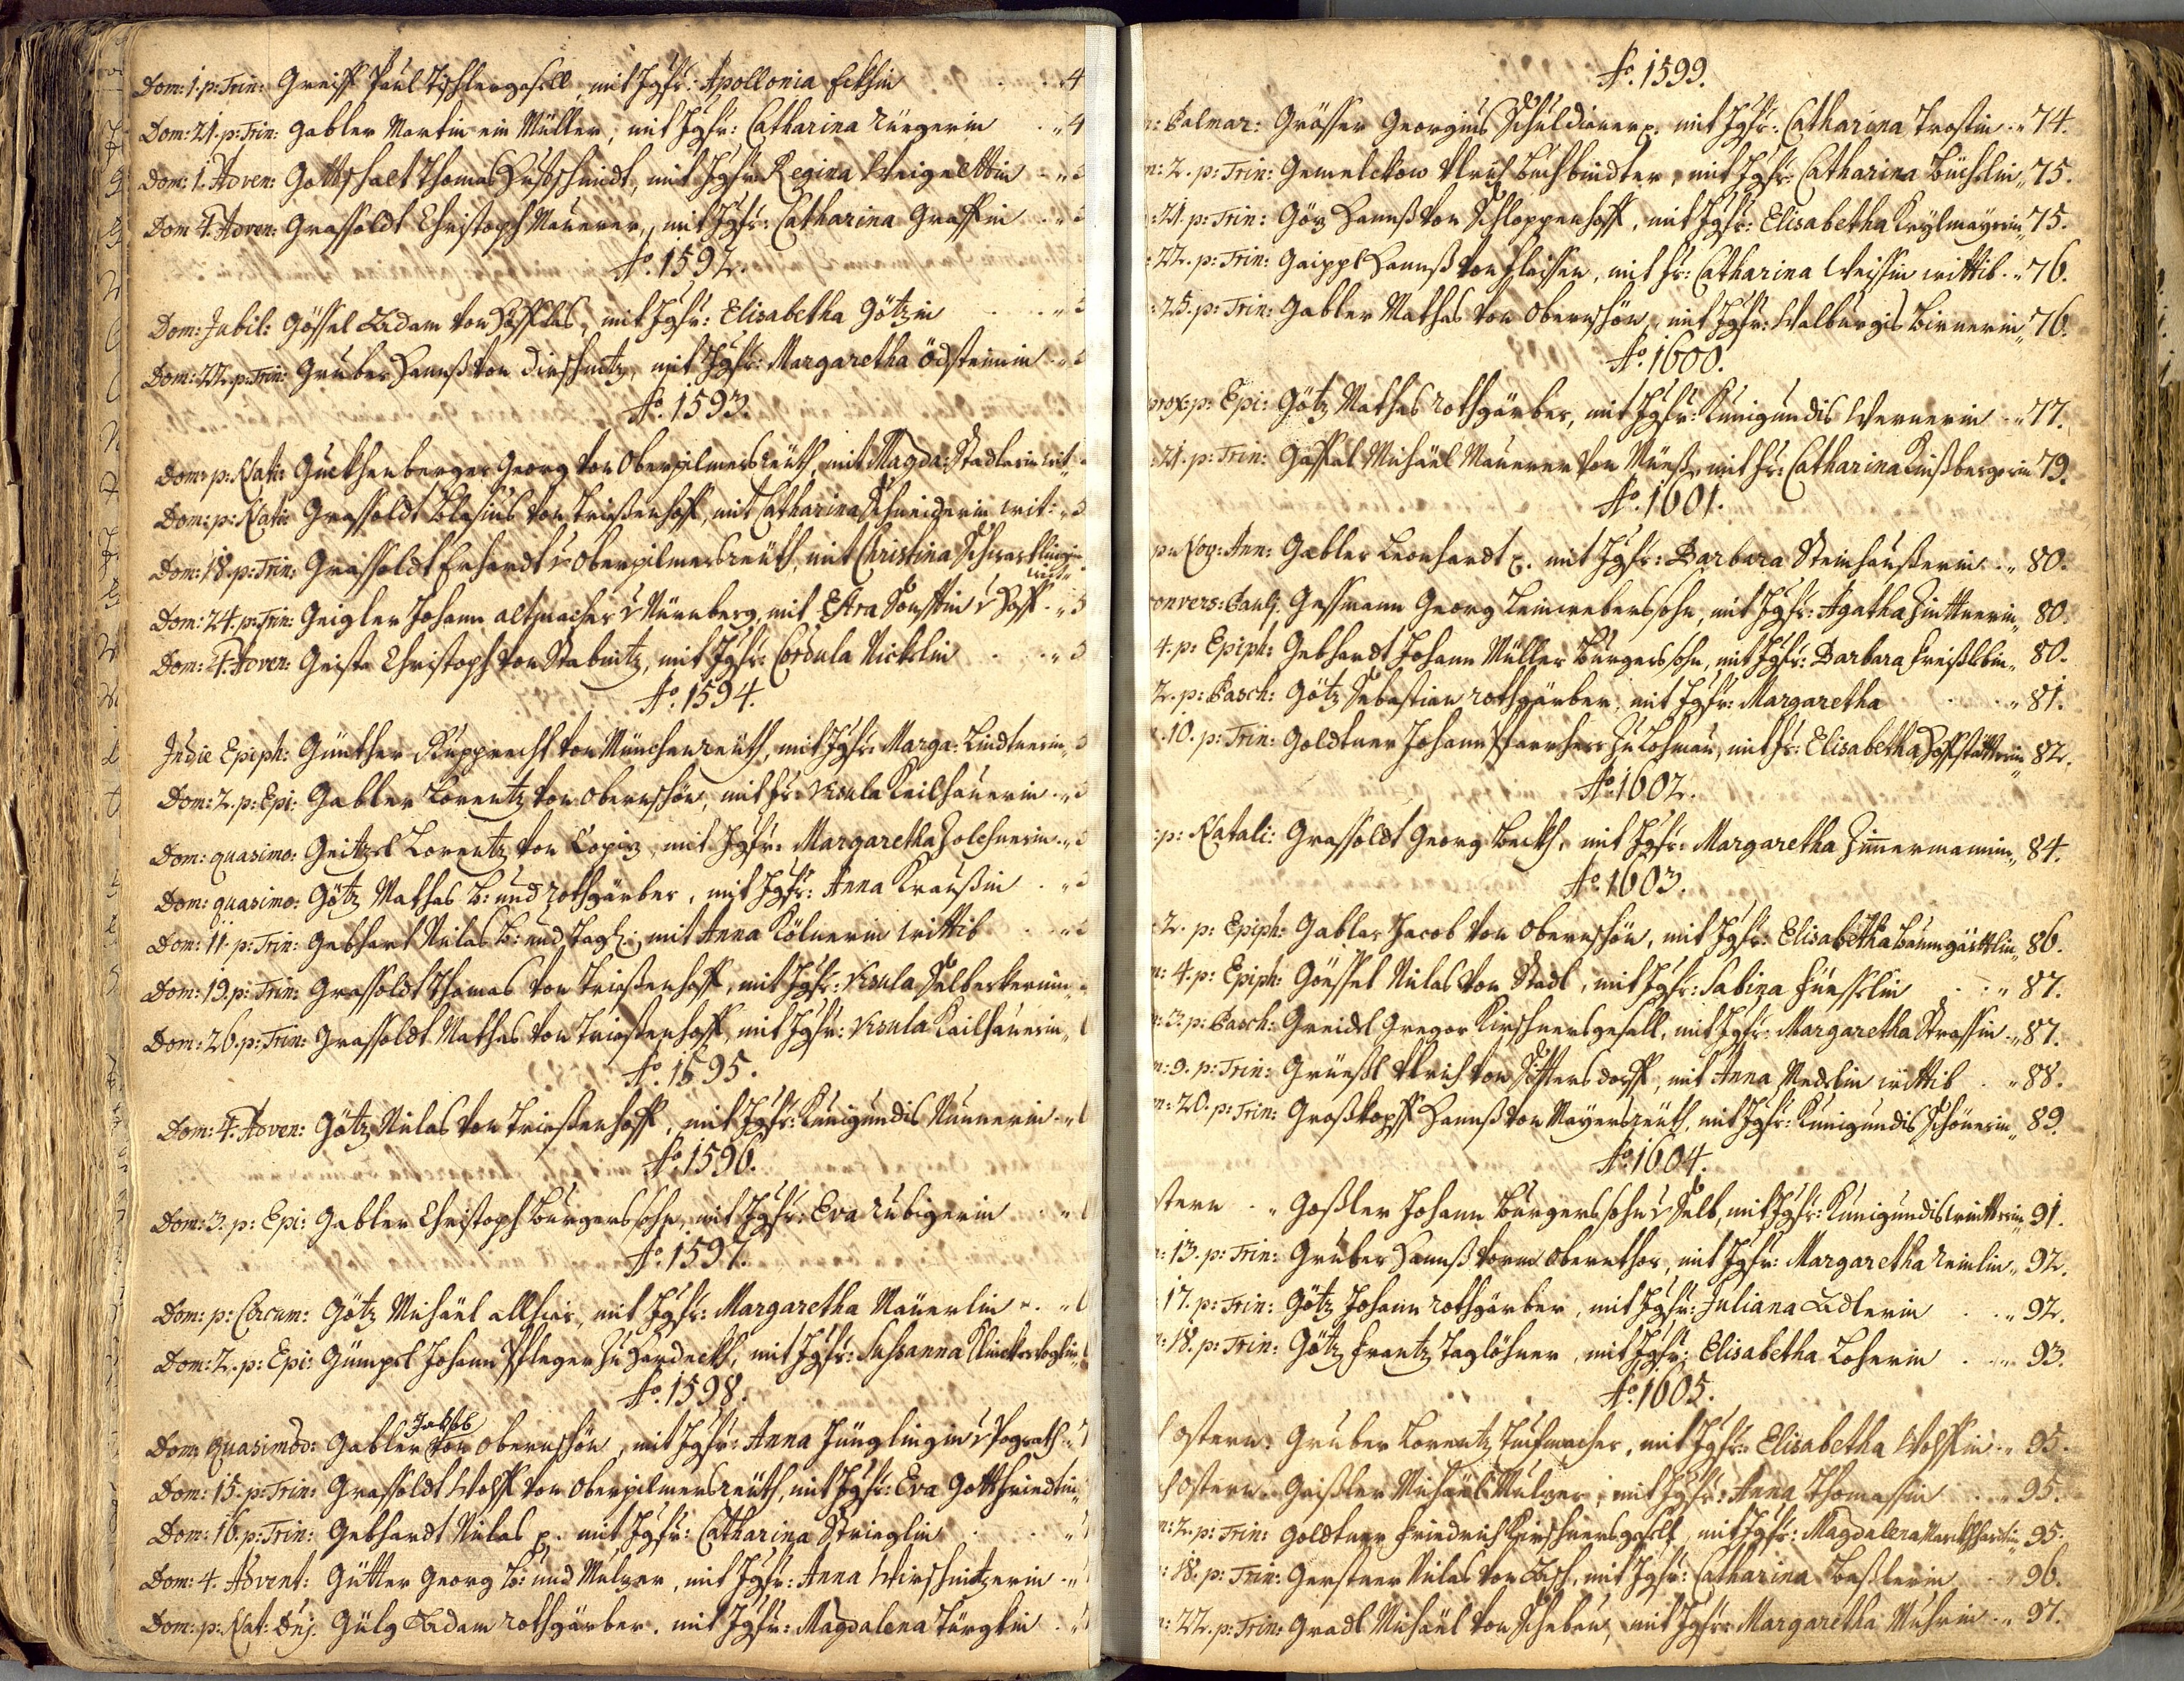 Dom: 1. p: Trin: Greiff Paul Tischlergesell, mit Jgfr: Apollonia Eckhin „4
Dom: 21. p: Trin: Gabler Martin ein Müller, mit Jgfr: Catharina Rüegerin „4
Dom: 1. Adven: Gottschalt Thomas Huebschmidt, mit Jgfr: Regina Weigeltin
Dom 4. Adven: Grassoldt Christoph Maurer, mit Jgfr: Catharina Graffin
Ao. 1592.
Dom: Jubil: Gössel Adam von Höfflas, mit Jgfr: Elisabetha Götzin
Dom: 22. p: Trin: Gruber Hannß von Dirschnitz, mit Jgfr: Margaretha Ödsteinin
Ao. 1593.
Dom: p: Nati: Guckhenberger Georg von Oberpilmersreuth, mit Magda: Stadlerin wit
Dom: p: Nati: Grassoldt Blasius von Triesenhoff, mit Catharina Schneiderin wit:
Dom: 18. p: Trin: Grassoldt Erhardt v Oberpilmersreuth, mit Christina
Dom: 24. p: Trin: Geigler Johann v Nürnberg, mit v Hoff
Dom: 4. Adven: Christoph von Stabnitz, mit Jgfr: Cordula Nicklin
Ao. 1594.
In die Epiph: Günther Rupprecht von Münchenreuth, mit Jgfr: Marga: Lindtnerin
Dom: 2. p: Epi: Gabler Lorentz von Obernschön, mit Fr: Vrsula Keilhauerin
Dom: quasimo: Geitzel Lorentz von mit Jgfr: Margaretha Holchnerin
Dom: quasimo: Götz Mathes B: und Rothgärber, mit Jgfr: Anna Kraußin
Dom: 11. p: Trin: Gebhart Niclas B: und Tagl: mit Anna Kölnerin wittib
Dom: 19. p: Trin: Grassoldt Thomas von Triesenhoff, mit Jgfr: Vrsula
Dom: 26. p: Trin: Grassoldt Mathes von Triesenhoff, mit Jgfr: Vrsula Kailhauerin
Ao. 1595.
Dom: 4. Adven: Götz Niclas von Triesenhoff, mit Jgfr: Kunigundis Nunnerin
Ao. 1596.
Dom: 3. p: Epi: Gabler Christoph Burgerssohn, mit Jgfr: Eva Rubigerin
Ao. 1597.
Dom: p: Circum: Götz Michäel allhier, mit Jgfr: Margaretha Mäuerlin
Dom: 2. p: Epi: Gümpel Johann Pfleger zu Hardeckh, mit Jgfr: Sussanna
Ao. 1598.
Dom: quasimod: Gabler Jakob von Obernschön, mit Jgfr: Anna Jünglingin v Pograth
Dom: 15. p: Trin: Grassoldt Wolff von Oberpilmersreuth, mit Jgfr: Eva Gottfriedtin
Dom: 16. p: Trin: Gebhardt Niclas p. mit Jgfr: Catharina Strieglin
Dom: 4. Advent: Gütter Georg B: und Mulzer, mit Jgfr: Anna Wirschnitzerin
Dom: p: Nat: Dnj. Gülg Adam Rothgärber, mit Jgfr: Magdalena Türglin
Ao. 1599.
: Palmar: Grösser Georgius Schuldiener p. mit Jgfr: Catharina Trostin „74.
: 2. p: Trin: Gemelckow Vlrich Buchbindter, mit Jgfr: Catharina Büchlin „75.
: 21. p: Trin: Götz Hannß von Schloppenhoff, mit Jgfr: Elisabetha Keylmayrin „75.
: 22. p: Trin: Gaippl Hannß von Fleissen, mit Fr: Catharina Weissin wittib „76.
: 25. p: Trin: Gabler Mathes von Obernschön, mit Jgfr: Walburgis Birnerin „76.
Ao. 1600.
prox: p: Epi: Götz Mathes Rothgärber, mit Jgfr: Kunigundis Wernerin „77.
: 21. p: Trin: Gassel Michäel Maurer von mit Fr: Catharina 79.
Ao. 1601.
Gabler Leonhardt mit Jgfr: Barbara Steinhaußerin „80.
convers: Pauli. Gessmann Georg Leinweberssohn, mit Jgfr: Agatha „80.
4. p: Epiph: Gebhardt Johann Müller Burgerssohn, mit Jgfr: Barbara „80.
2. p: Pasch: Götz Sebastian Rothgärber, mit Jgfr: Margaretha „81.
10. p: Trin: Goldtner Johann Pfarrherr zu Lohman, mit Fr: Elisabetha Hoffstätterin 82.
Ao. 1602.
: p: Natali: Grassoldt Georg Beckh, mit Jgfr: Margaretha Zimmermannin „84.
Ao. 1603.
2. p: Epiph: Gabler Jacob von Obernschön, mit Jgfr: Elisabetha Baumgärttlin „86.
: 4. p: Epiph: Göessel Niclas von Stadl, mit Jgfr: Sabina Füesslin „87.
: 3. p: Pasch: Greidl Gregor Kirschnersgesell, mit Jgfr: Margaretha Strassin „87.
: 9. p: Trin: Grüeßl Vlrich von mit Anna Medlin wittib „88.
: 20. p: Trin: Großkopff Hannß von Mayersreuth, mit Jgfr: Kunigundis Schönerin „89.
Ao. 1604.
stern „ Goßler Johann Burgerssohn v Selb, mit Jgfr: Kunigundis „91.
: 13. p: Trin: Gruber Hannß vorm Obernthor, mit Jgfr: Margaretha Reinlin „92.
17. p: Trin: Götz Johann Rothgärber, mit Jgfr: Juliana Adlerin „92.
: 18. p: Trin: Götz Frantz Taglöhner, mit Jgfr: Elisabetha Loherin „93.
Ao. 1605.
Ostern: Gruber Lorentz Tuchmacher, mit Jgfr: Elisabetha Wolffin „95.
Ostern. Geißler Michäel Mulzer, mit Jgfr: Anna Thomassin „95.
: 2. p: Trin: Goldtner Friedrich Kirschnersgesell, mit Jgfr: Magdalena 95.
: 18. p: Trin: Gerstner Niclas von Asch, mit Jgfr: Catharina Beßlerin „96.
: 22. p: Trin: Gradl Michäel von Scheben, mit Jgfr: Margaretha Muhrin „97.